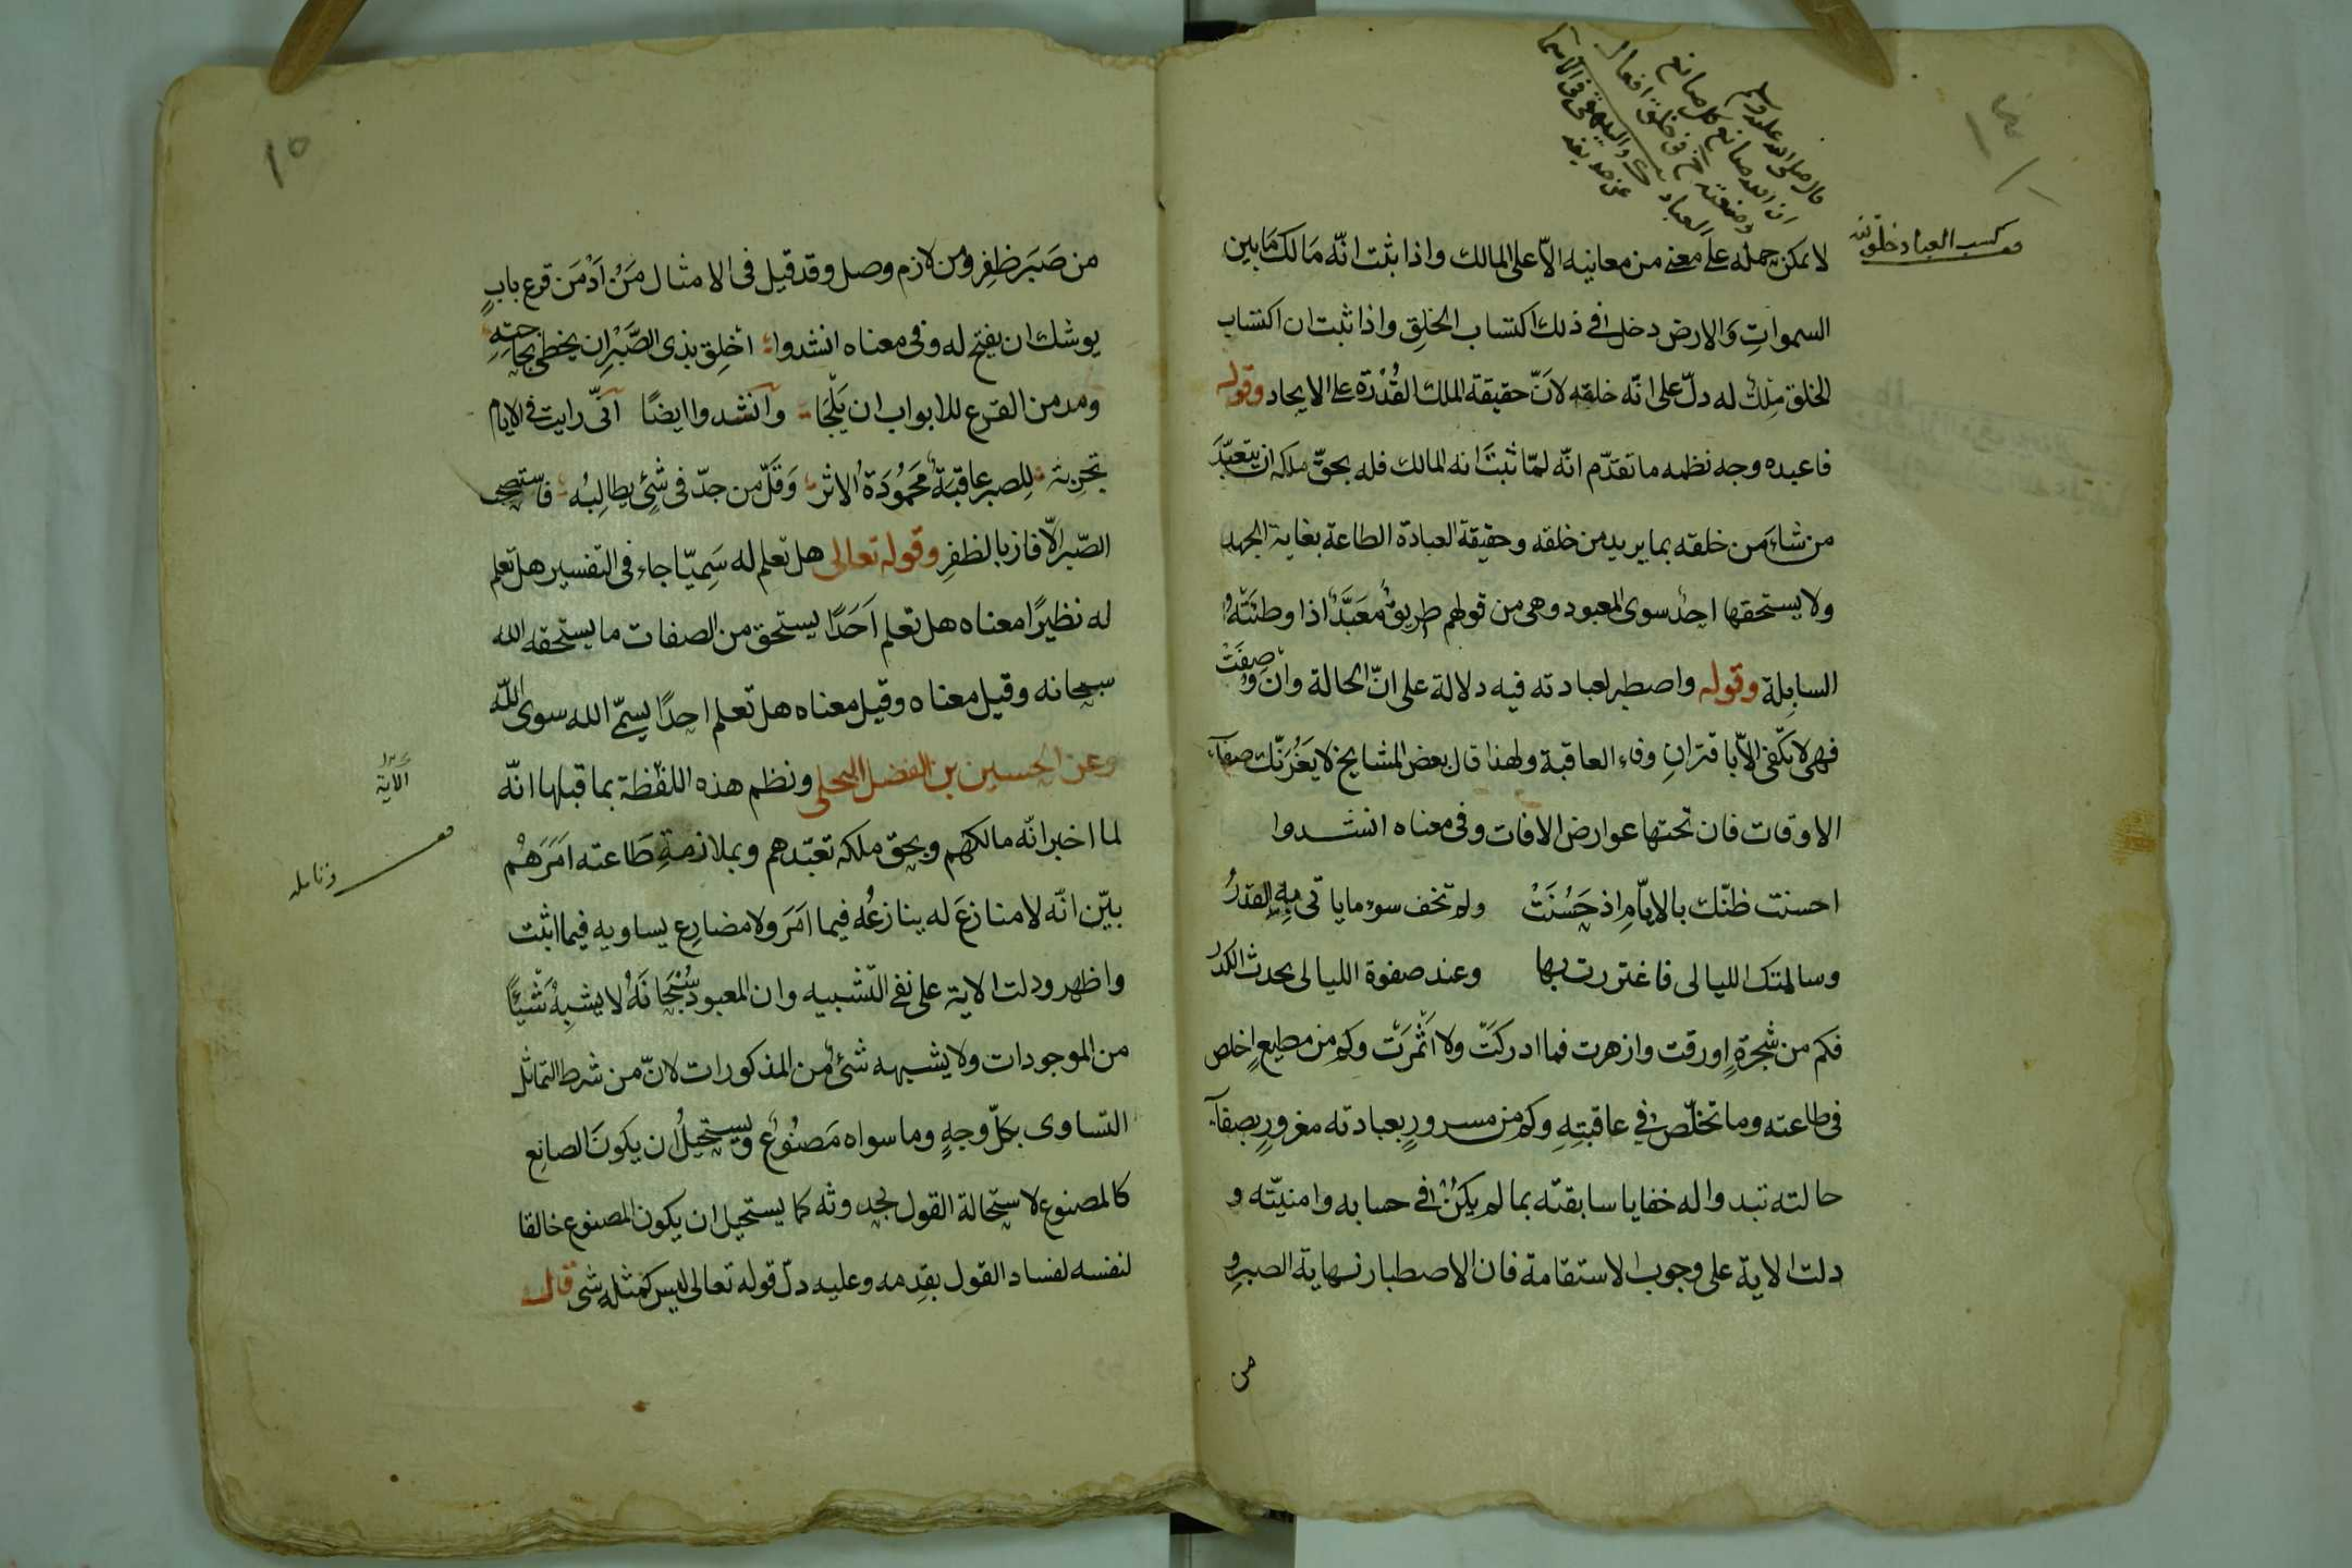 ١٤
قال صلى الله عليه وسلم
ان الله صانع كل صانع
وصنعته خ فى خلق افعال
العباد ك والبيهقى فى الاسما
عن حذيفة
كسب العباد خلق لله
لا يمكن حمله على معنى من معانيه الاّ على المالك واذا ثبت انّه مَالك مَا بين
السمواتِ وَالارض دخل فى ذلك اكتساب الخلِق واذا ثبت ان اكتساب
الخلق مِلك له دلّ على انّه خلقه لانَّ حقيقة الملك القُدْرة على الايجاد وقوله
فاعبده وجه نظمه ما تقدّم انّه لمّا ثبتَ انه المالك فله بحقّ ملكه ان يتعبّدَ
من شاءَ من خلقه بما يريد من خلقه وحقيقة العبادة الطاعة بغاية الجهد
ولا يستحقها احدٌ سوى المعبود وهى من قولهم طريقٌ معَبَّدٌ اذا وطئَتْه
السابِلة وقوله واصطبر لعبادته فيه دلالة على انّ الحالة وان وصِفَتْ
فهى لا تكفى الاّ باقترانِ وفاءِ العاقبة ولهذا قال بعض المشايخ لا يَغُرَنّك صفآء
الاوقات فان تحتها عوارض الافات وفى معناه انشدوا
احسنت ظنّك بالايّامِ اذ حَسُنَتْ ولم تخف سوء ما ياتى بِهِ القدرُ
وسالمتك الليالى فاغتررت بها وعند صفوة الليالى يحدث الكدرُ
فكم من شجرةٍ اورقت وازهرت فما ادركَتّ ولا اَثْمرَت وكم من مطيعٍ اخلص
فى طاعته وما تخلّص فى عاقبتِهِ وكم من مسرورٍ بعبادته مغرورٍ بصفآء
حالته تبدوا له خفايا سابقته بما لم يكنْ فى حسابه وامنيّته و
دلت الاية على وجوب الاستقامة فان الاصطبار نهاية الصبرِ و
من
١٥
من صَبَر ظفِر ومن لازم وصل وقد قيل فى الامثال مَنْ اَدْمَن قرع بابٍ
يوشك ان يفتح له وفى معناه انشدوا اخلِق بذى الصَّبْرِ ان يحظى بحاجتهِ
ومدمن القرع للابواب ان يَلْجَا وانشدوا ايضًا انّى رايت فى الايام
تجرِبة للصبر عاقبةً محَمُودَةُ الاثر وَقَلّ من جدّ فى شئٍ يطالِبُه فاستصحب
الصّبر الاّ فاز بالظفرِ وقوله تعالى هل تعلم له سَمِيّا جاء فى التفسير هل تعلم
له نظيرًا معناه هل تعلم اَحَدًا يستحق من الصفات ما يستحقه الله
سبحانه وقيل معناه وقيل معناه هل تعلم احدًا يسمّى الله سوى اللّه
وعن الحسين بن الفضل البجلى ونظم هذه اللفظة بما قبلها انّه
الاية
لما اخبر انّه مالكهم وبحق ملكه تعبّدهم وبملازمةِ طَاعته امَرَهُم
بيّن انّه لا منازعَ له ينازعُه فيما امَرَ ولا مضارِع يساويه فيما اثبت
واظهر ودلت الاية على نفى التّشبيه وان المعبود سُبْحَانَهُ لا يشبِهُ شَيْئًا
من الموجودات ولا يشبهه شئٌ من المذكورات لانّ من شرط التماثل
التّساوى بكلّ وجهٍ وما سواه مَصنُوعٌ ويستحيلُ ان يكونَ الصانِع
كالمصنوع لاستحالة القول بحدوثه كما يستحيل ان يكون المصنوع خالقا
لنفسه لفساد القول بقِدمه وعليه دلّ قوله تعالى ليس كمثلهِ شى قال